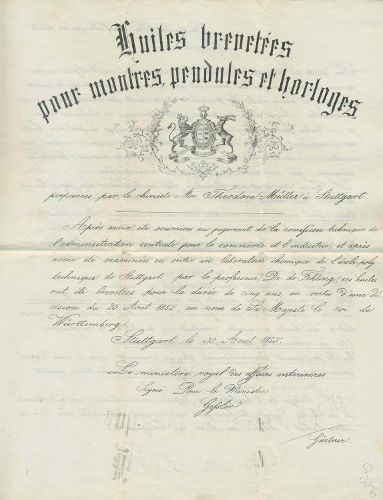 Huiles brevetées
pour montres, pendules et horloges,
préparées par le chimiste Mr Théodore Müller à Stuttgart
Après avoir été soumises au jugement de la comission technique de
l'administration centrale pour le commerce et l'industrie, et après
avoir été examinées en outre au laboratoire chimique de l'école poly
technique de Stuttgart, par le professeur Dr. de Fehling, ces huiles
ont été brevetées pour la durée de cinq ans, en vertu d'une dé
cision du 20 Août 1855, au nom de Sa Majesté le roi de
Württemberg.
Stuttgart le 30 Août 1855.
Le ministère royal des affaires intérieures
Signé Pour le Ministre
Gessler
Gärtner